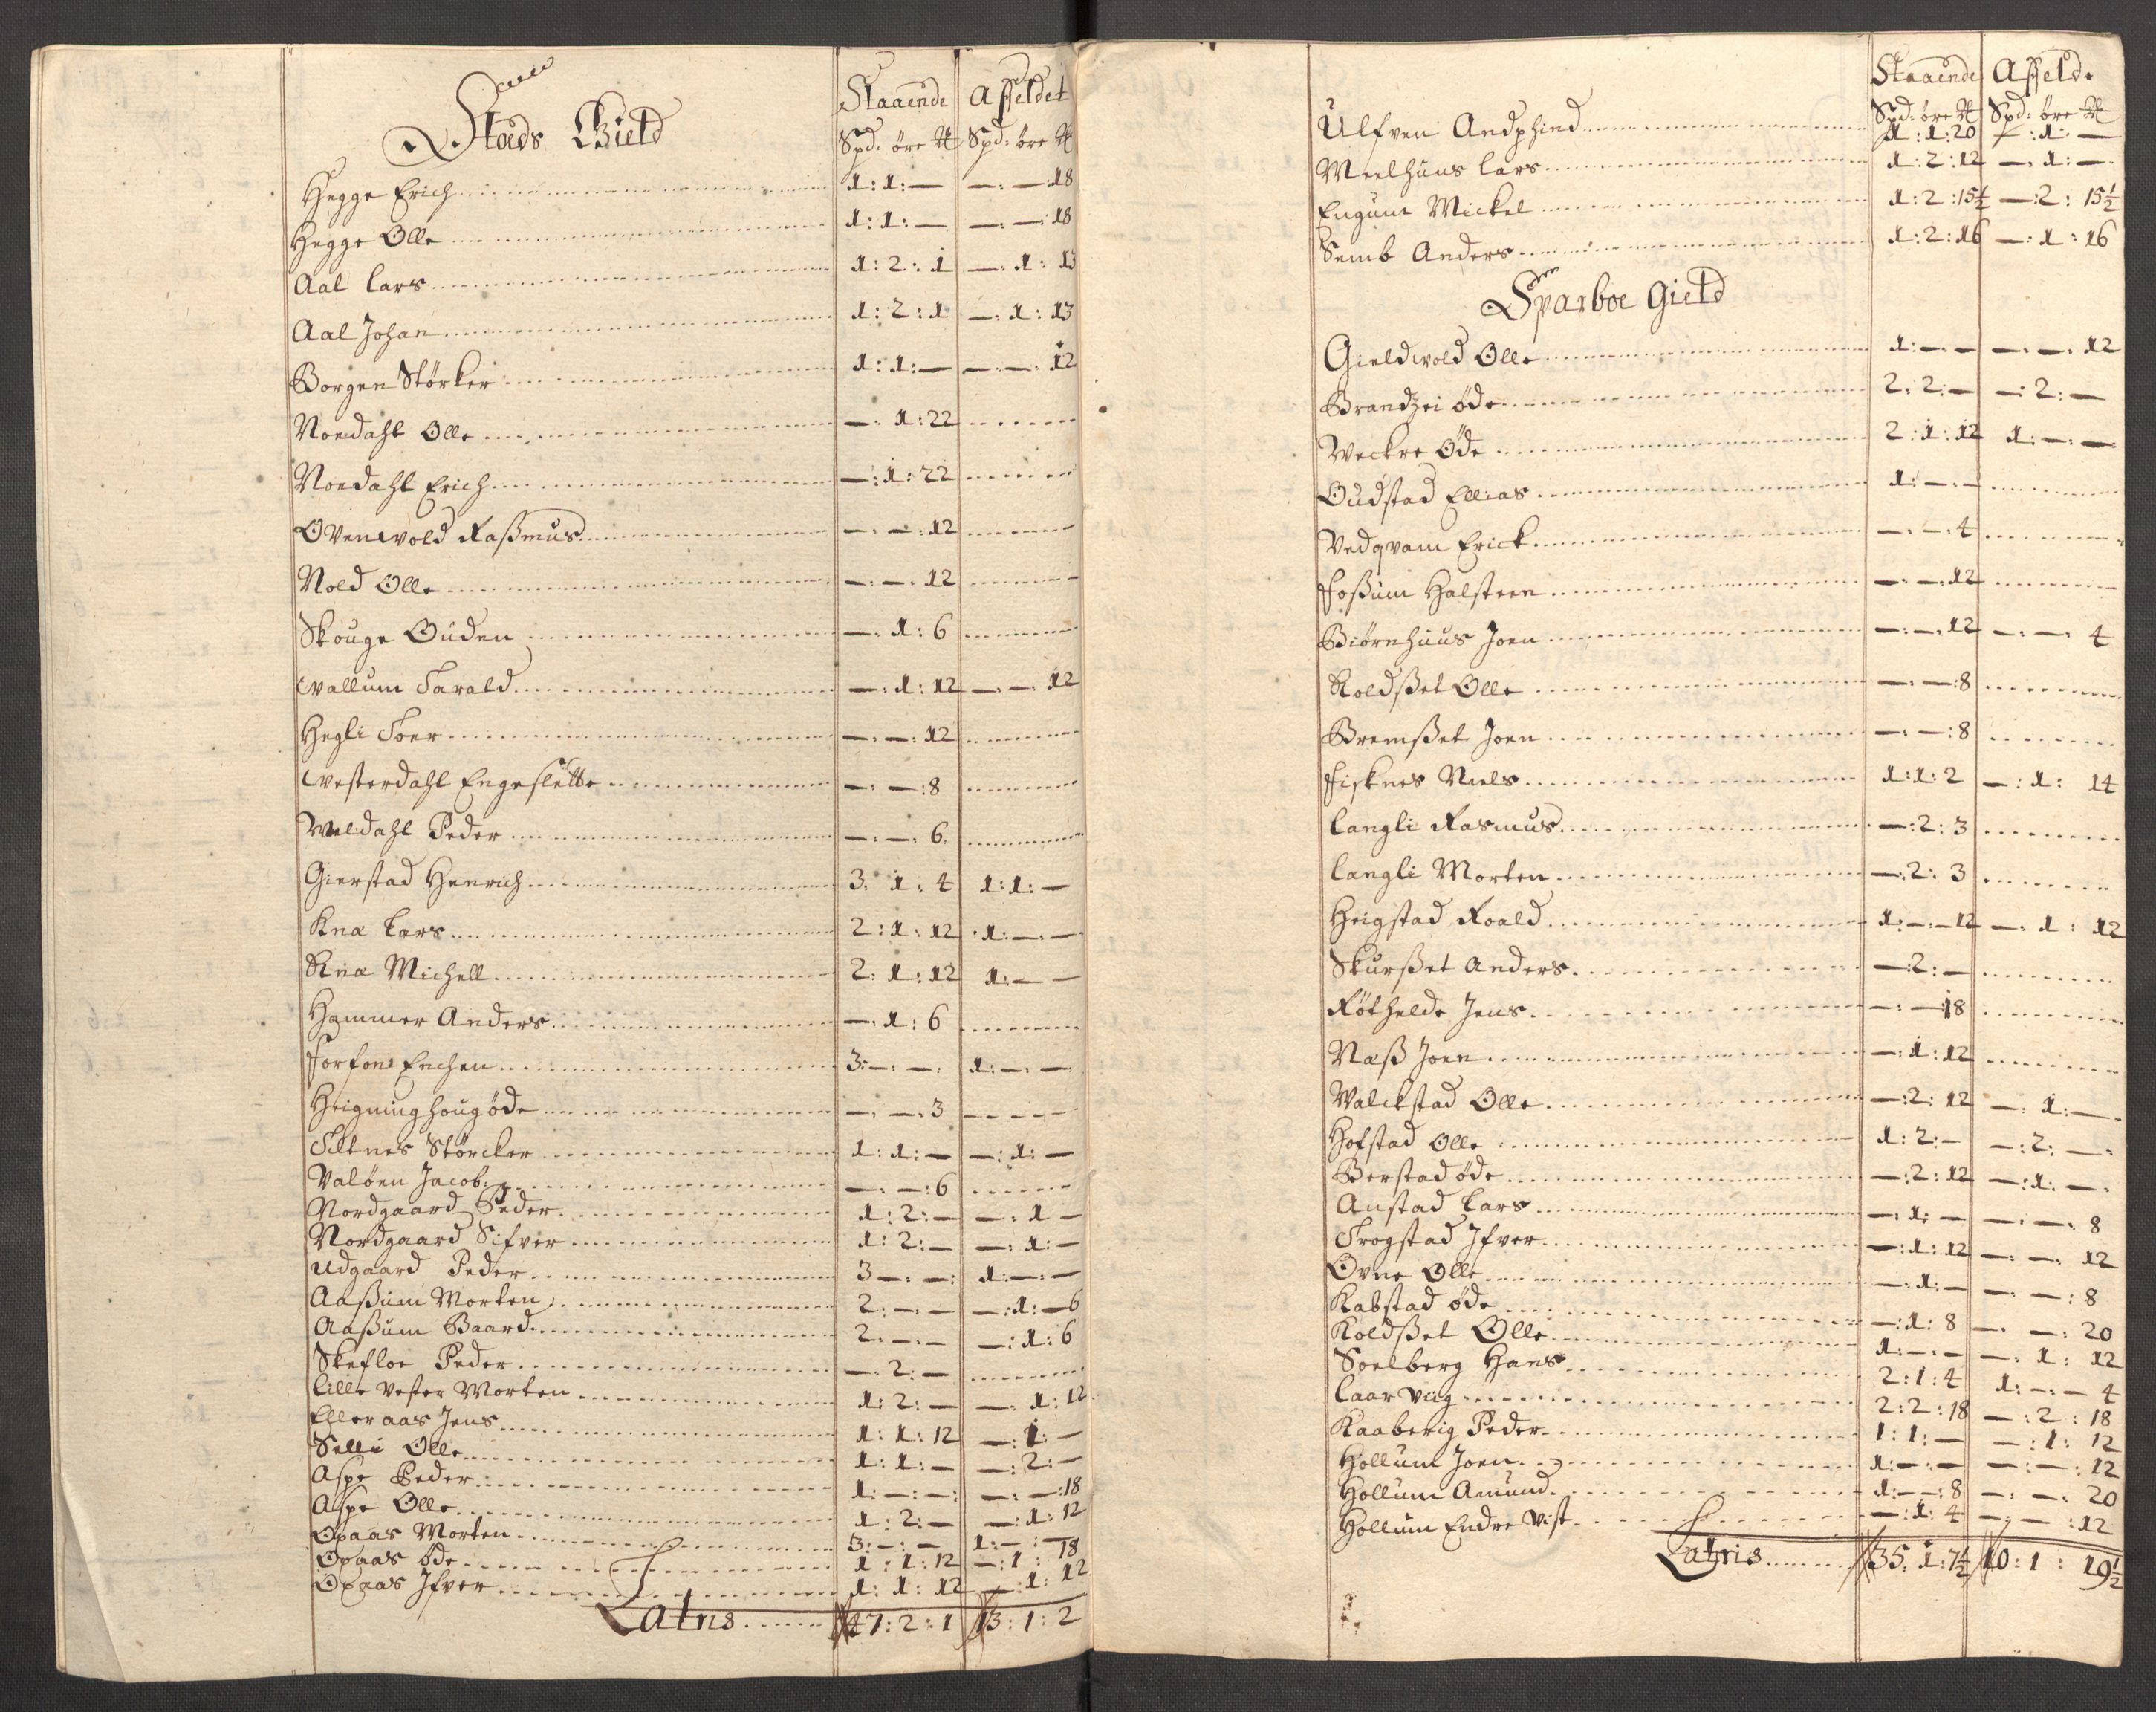 Stads Gield
Staaende Affeldet
Spd: öre ℔ Spd: öre ℔
Hegge Erich 1:1:— —:—:18
Hegge Olle 1:1:— —:—:18
Aal Lars 1:2:1 —:1:13
Aal Johan 1:2:1 —:1:13
Borgen Störker 1:1:— —:—:12
Noedahl Olle —:1:22
Noedahl Erich —:1:22
Ovenvold Raßmus —:—:12
Vold Olle —:—:12
Skouge Ouden —:1:6
Wallum Tarald —:1:12 —:—:12
Hegli Toer —:—:12
Westerdahl Engeslette —:—:8
Weldahl Peder —:—:6
Gierstad Henrich 3:1:4 1:1:—
Kna Lars 2:1:12 1:—:—
Kna Michell 2:1:12 1:—:—
Hammer Anders —:1:6
Forfone Enchen 3:—:— 1:—:—
Heigninghoug öde —:—:3
Tiltnes Störcker 1:1:— —:1:—
Valöen Jacob —:—:6
Nordgaard Peder 1:2:— —:1:—
Nordgaard Sifver 1:2:— —:1:—
Udgaard Peder 3:—:— 1:—:—
Aaßum Morten 2:—:— —:1:6
Aaßum Baard 2:—:— —:1:6
Skefloe Peder —:2:—
Lille Vester Morten 1:2:— —:1:12
Elleraas Jens 1:1:12 —:1:—
Selli Olle 1:1:— —:2:—
Aspe Peder 1:—:— —:—:18
Aspe Olle 1:2:— —:1:12
Opaas Morten 3:—:— 1:—:—
Opaas öde 1:1:12 —:1:18
Opaas Ifver 1:1:12 —:1:12
Latris 47:2:1 13:1:2
Staaende Affeld.
Spd: öre ℔ Spd: öre ℔
Ulfven Andphind 1:1:20 —:1:—
Meelhuus Lars 1:2:12 —:1:—
Engum Mickel 1:2:15½ —:2:15½
Semb Anders 1:2:16 —:1:16
Sparboe Gield
Gieldvold Olle 1:—:— —:—:12
Brandzei öde 2:2:— —:2:—
Weckre Öde 2:1:12 1:—:—
Oudstad Ellias 1:—:—
Vedqvam Erick —:—:4
Foßum Halsteen —:—:12
Biörnhuus Joen —:—:12 —:—:4
Koldßet Olle —:—:8
Bremßet Joen —:—:8
Fisknes Niels 1:1:2 —:1:14
Langli Rasmus —:2:3
Langli Morten —:2:3
Heigstad Roald 1:—:12 —:1:12
Skurßet Anders —:2:—
Röthelde Jens —:—:18
Næß Joen —:1:12
Walckstad Olle —:2:12 —:1:—
Hofstad Olle 1:2:— —:2:—
Berstad öde —:2:12 —:1:—
Anstad Lars —:1:— —:—:8
Trogstad Ifver —:1:12 —:—:12
Ovne Olle —:1:— —:—:8
Kabstad öde —:1:8 —:—:20
Koldßet Olle 1:—:— —:1:12
Soelberg Hans 2:1:4 1:—:4
Laar Viig 2:2:18 —:2:18
Kaaberig Peder 1:1:— —:1:12
Hollum Joen 1:—:— —:—:12
Hollum Amund 1:—:8 —:—:20
Hollum Endre Vist —:1:4 —:—:12
Latris 35:1:7½ 10:1:19½